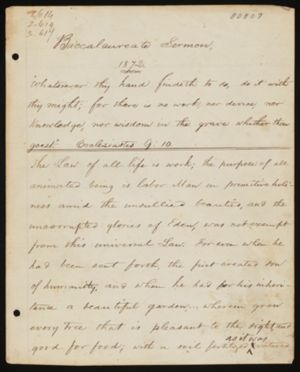 2-614
3-614
00009
Baccalaureate Sermon,
1872
Whatsoever thy hand findeth to do, do it with
thy might; for there is no work, nor device, nor
knowledge, nor wisdom in the grave whether thou
goest" Ecclesiastes 9: 10.
The Law of all life is work; the purpose of all
animated being is labor Man in primitive holi-
ness amid the unsullied beauties, and the
uncorrupted glories of Eden, was not exempt
from this universal Law. For even when he
had been sent forth, the first created son
of humanity, and when he had for his inher-
itance a beautiful garden... wherein grew
every tree that is pleasant to the sight and
as it was
good for food; with a soil fertilized